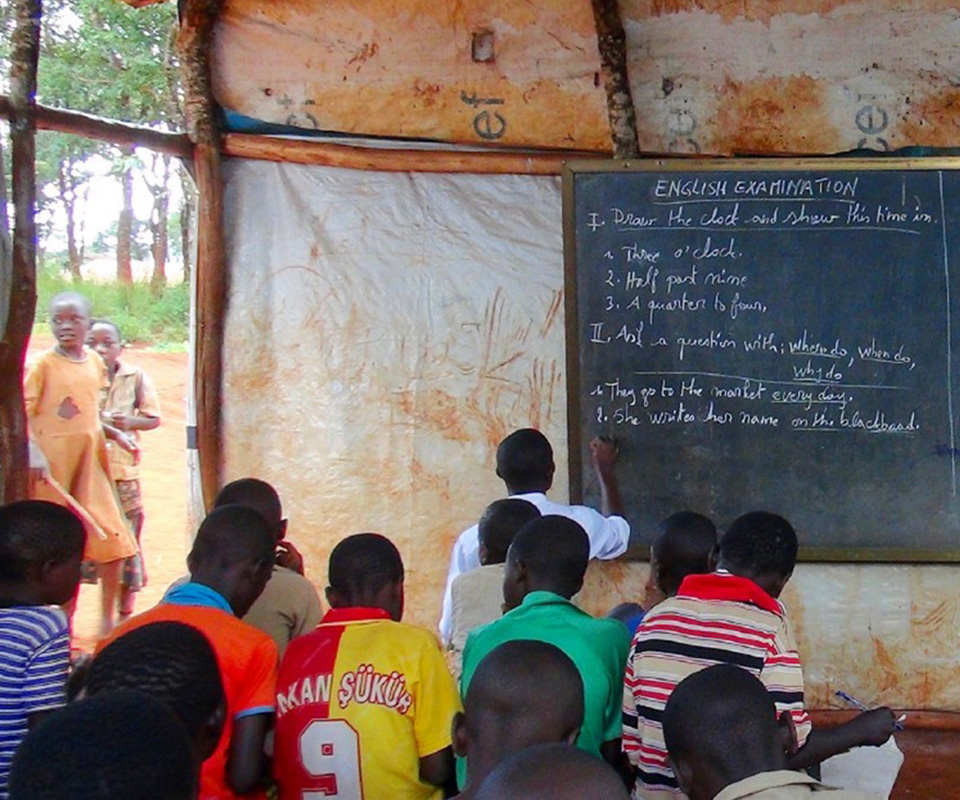 ef
cef
ENGLISH EXAMINATION
I. Draw the clock and show this time in.
1. Three o'clock.
2. Half past nine
3. A quarter to four,
II. Ask a question with: where do, when do,
why do
1. They go to the market every day.
2. She writes her name on the blackboard.
AKAN ŞÜKÜR
9